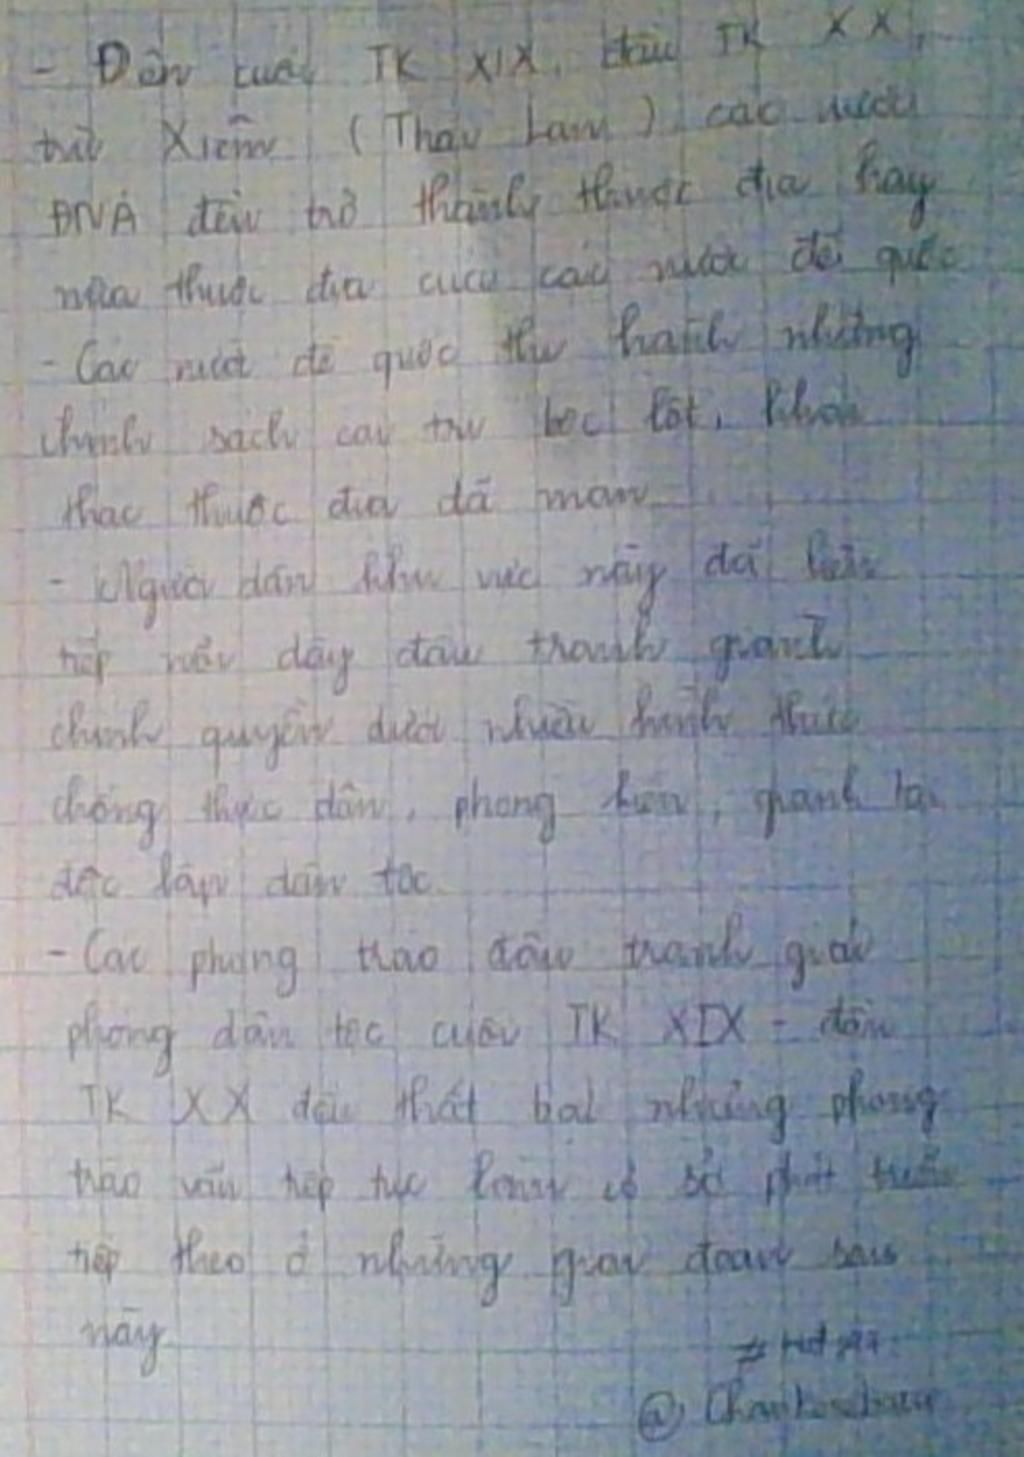 - Đến cuối TK XIX, đầu TK XX,
trừ Xiêm (Thái Lan) các nước
ĐNÁ đều trở thành thuộc địa hay
nửa thuộc địa của các nước đế quốc
- Các nước đế quốc thi hành những
chính sách cai trị bóc lột, khai
thác thuộc địa dã man
- Người dân khu vực này đã liên
tiếp nổi dậy đấu tranh giành
chính quyền dưới nhiều hình thức
chống thực dân, phong kiến, giành lại
độc lập dân tộc
- Các phong trào đấu tranh giải
phóng dân tộc cuối TK XIX - đầu
TK XX đều thất bại nhưng phong
trào vẫn tiếp tục làm cơ sở phát triển
tiếp theo ở những giai đoạn sau
này